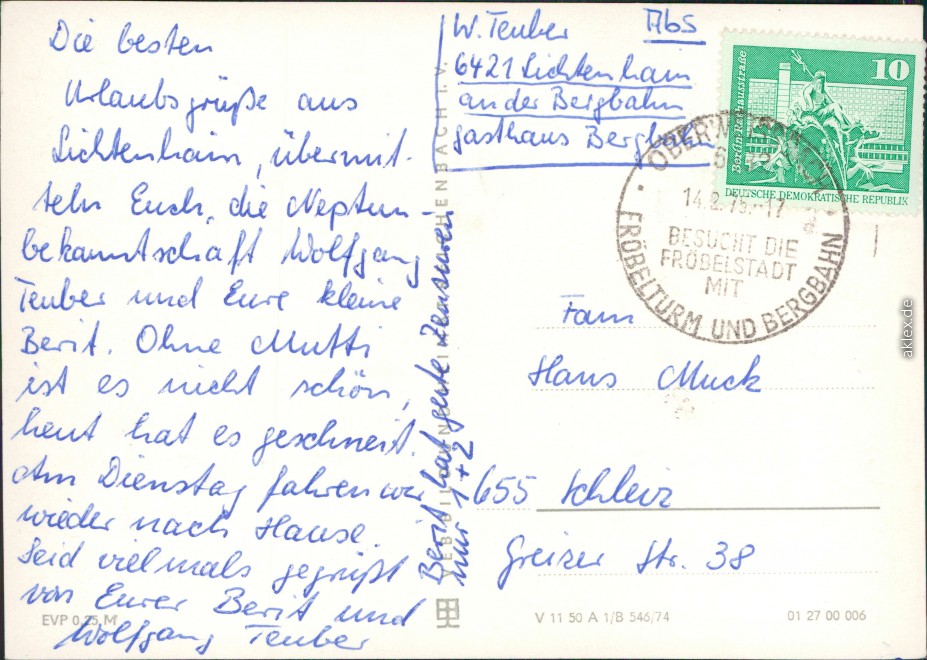 Die besten
Urlaubsgrüße aus
Lichtenhain, übermit-
teln Euch, die Neptun-
bekanntschaft Wolfgang
Teuber und Eure kleine
Berit. Ohne Mutti
ist es nicht schön,
heut hat es geschneit.
Am Dienstag fahren wir
wieder nach Hause.
Seid vielmals gegrüßt
von Eurer Berit und
Wolfgang Teuber
EVP 0,25 M
Berit hat gute Zensuren
nur 1+2
W. Teuber Abs
6421 Lichtenhain
an der Bergbahn
gasthaus Bergbahn
10
Berlin, Rathausstraße
DEUTSCHE DEMOKRATISCHE REPUBLIK
OBERWEISSBACH
14.2.75.-17
BESUCHT DIE
FRÖBELSTADT
MIT
FRÖBELTURM UND BERGBAHN
Fam
Hans Muck
655 Schleiz
Greizer Str. 38
V 11 50 A 1/B 546/74
01 27 00 006
aklex.de